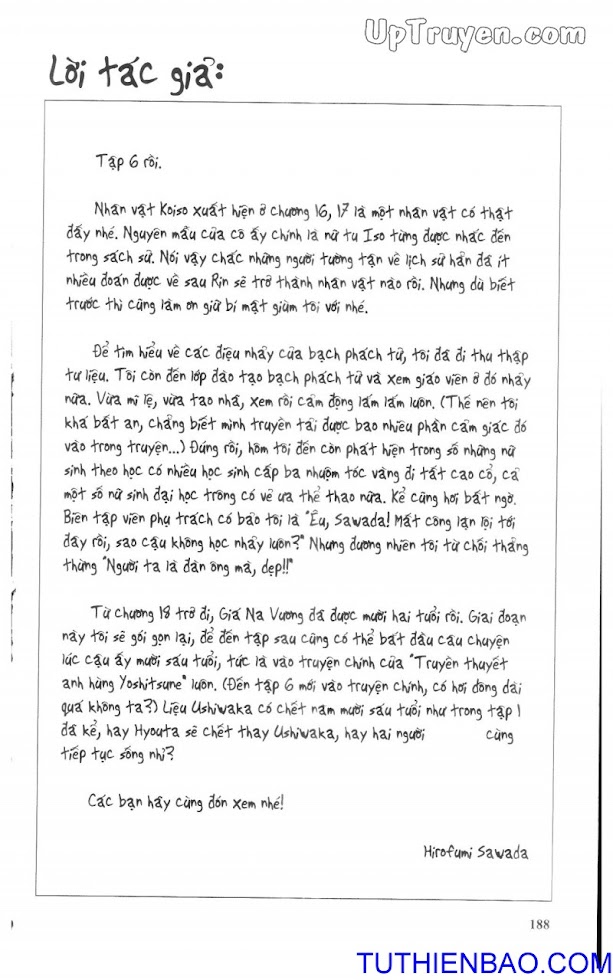 UpTruyen.com
Lời tác giả:
Tập 6 rồi.
Nhân vật Koiso xuất hiện ở chương 16, 17 là một nhân vật có thật
đấy nhé. Nguyên mẫu của cô ấy chính là nữ tu Iso từng được nhắc đến
trong sách sử. Nói vậy chắc những người tường tận về lịch sử hẳn đã ít
nhiều đoán được về sau Rin sẽ trở thành nhân vật nào rồi. Nhưng dù biết
trước thì cũng làm ơn giữ bí mật giùm tôi với nhé.
Để tìm hiểu về các điệu nhảy của bạch phách tử, tôi đã đi thu thập
tư liệu. Tôi còn đến lớp đào tạo bạch phách tử và xem giáo viên ở đó nhảy
nữa. Vừa mĩ lệ, vừa tao nhã, xem rồi cảm động lắm lắm luôn. (Thế nên tôi
khá bất an, chẳng biết mình truyền tải được bao nhiêu phần cảm giác đó
vào trong truyện...) Đúng rồi, hôm tôi đến còn phát hiện trong số những nữ
sinh theo học có nhiều học sinh cấp ba nhuộm tóc vàng đi tất cao cổ, cả
một số nữ sinh đại học trông có vẻ ưa thể thao nữa. Kể cũng hơi bất ngờ.
Biên tập viên phụ trách có bảo tôi là "Êu, Sawada! Mất công lặn lội tới
đây rồi, sao cậu không học nhảy luôn?" Nhưng đương nhiên tôi từ chối thẳng
thừng "Người ta là đàn ông mà, dẹp!!"
Từ chương 18 trở đi, Giá Na Vương đã được mười hai tuổi rồi. Giai đoạn
này tôi sẽ gói gọn lại, để đến tập sau cũng có thể bắt đầu câu chuyện
lúc cậu ấy mười sáu tuổi, tức là vào truyện chính của "Truyền thuyết
anh hùng Yoshitsune" luôn. (Đến tập 6 mới vào truyện chính, có hơi dông dài
quá không ta?) Liệu Ushiwaka có chết năm mười sáu tuổi như trong tập 1
đã kể, hay Hyouta sẽ chết thay Ushiwaka, hay hai người cùng
tiếp tục sống nhỉ?
Các bạn hãy cùng đón xem nhé!
Hirofumi Sawada
188
TUTHIENBAO.COM